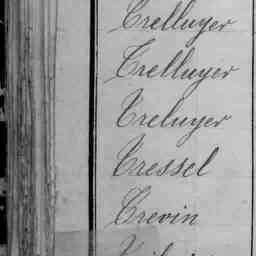 Trelluyer
Trelluyer
Treluyer
Tressel
Trevin